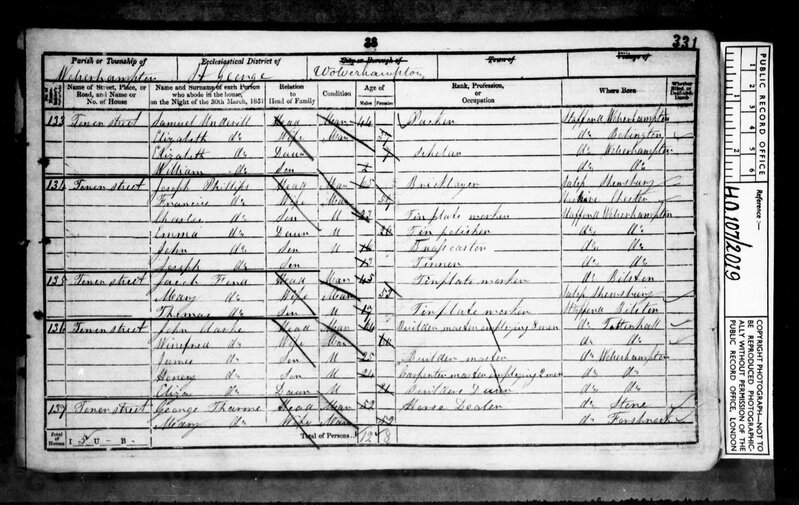 38
331
Parish or Township of
Ecclesiastical District of
City or Borough of
Town of
Village of
Wolverhampton
St George
Wolverhampton
Name of Street, Place, or Road, and Name or No. of House
Name and Surname of each Person who abode in the house, on the Night of the 30th March, 1851
Relation to Head of Family
Condition
Age of
Males
Females
Rank, Profession, or Occupation
Where Born
133 Tenen street Samuel Head Mar 44 Staffend Wolverhampton
Elizabeth do Wife Mar do
Elizabeth do Daur 7 Scholar do Wolverhampton
William do Son do do
134 Tenen street Joseph Phillips Head Mar 65 Bricklayer Salop Shewsbury
Francis do Wife Mar 57 Chester
Charles do Son U 22 Tin plate worker Staffend Wolverhampton
Emma do Daur U 20 Tin polisher do do
John do Son U 16 Brass caster do do
Joseph do Son 13 Tinner do do
135 Tenen street Jacob Head Mar 45 Tinplate worker do Bilston
Mary do Wife Mar 53 Salop Shewsbury
Thomas do Son U 17 Tinplate worker Staffend Bilston
136 Tenen street John Clarke Head Mar 64 Builder master employing 8 men do Tettenhall
Winefred do Wife Mar 60 do do
James do Son U 25 Builder master do Wolverhampton
Henery do Son U 24 Carpenter master employing 2 men do do
Eliza do Daun U 21 Builders Daur do do
137 Tenen street George Head Mar 52 Horse Dealer do Stone
Mary do Wife Mar 52 do
Total of Houses
I 5 U - B -
Total of Persons
12 8
PUBLIC RECORD OFFICE
1 2 3 4 5 6
Reference :-
HO 107/2019
COPYRIGHT PHOTOGRAPH—NOT TO BE REPRODUCED PHOTOGRAPHICALLY WITHOUT PERMISSION OF THE PUBLIC RECORD OFFICE, LONDON